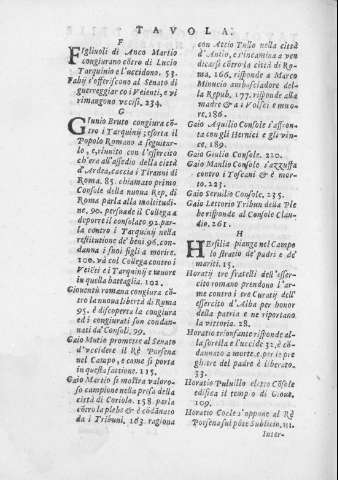 TAVOLA.
F
Figliuoli di Anco Martio
congiurano cõtro di Lucio
Tarquinio e l'uccidono. 53.
Fabij s'offeriscono al Senato di
guerreggiar co i Veienti, e vi
rimangono vccisi. 234.
G
Giunio Bruto congiura cõ-
tro i Tarquinij; esorta il
Popolo Romano a seguitar-
lo, e, riunito con l'essercito
ch'era all'assedio della città
d'Ardea, caccia i Tiranni di
Roma. 85. chiamato primo
Console della nuoua Rep. di
Roma parla alla moltitudi-
ne. 90. persuade il Collega a
deporre il consolato 92. par-
la contro i Tarquinij nella
restitutione de' beni 96. con-
danna i suoi figli a morire.
100. và col Collega contro i
Veiëti e i Tarquinij e muore
in quella battaglia. 102.
Giouentù romana congiura cõ-
tro la nuoua libertà di Roma
95. è discoperta la congiura
ed i congiurati sun condan-
nati da' Consoli. 99.
Gaio Mutio promette al Senato
d'vccidere il Rè Porsena
nel Campo, e come si porta
in questa fattione. 115.
Gaio Martio si mostra valoro-
so campione nella presa della
città di Coriola. 158. parla
cõtro la plebe & è cõdãnato
da i Tribuni. 163. ragiona
con Attio Tullo nella città
d'Antio, e s'incamina a ven
dicarsi cõtro la città di Ro-
ma. 166. risponde a Marco
Minucio ambasciador del-
la Repub. 177. risponde alla
madre & a i Volsci e muo-
re. 186.
Gaio Aquilio Console s'affron-
ta cu gli Hernici e gli vin-
ce. 189.
Gaio Giulio Console. 220.
Gaio Manlio Console s'azzuffa
contro i Toscani & è mor-
to. 223.
Gaio Seruilio Console. 235.
Gaio Lettorio Tribun della Ple
be risponde al Console Clau-
dio. 261.
H
Hersilia piange nel Campo
lo stratio de' padri e de'
mariti. 15.
Horatij tre fratelli dell'esser-
cito romano prendono l'ar-
me contro i tre Curatij dell'
essercito d'Alba per honor
della patria e ne riportano
la vittoria. 28.
Horatio trionfante risponde al-
la sorella e l'uccide 32. è cõ-
dannato a morte, e per le pre
ghiere del padre è liberato.
33.
Horatio Puluillo eletto Cõsole
edifica il tempio di Gioue.
109.
Horatio Cocle s'oppone al Rè
Porsena sul põte Sublicio. 111.
Inter-